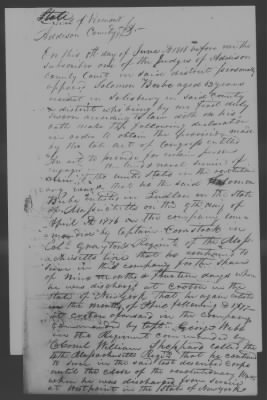 State
of Vermont
Addison County
On this 8th day of June 1818 before me the
subscriber one of the Judges of Addison
County Court in said district personally
appears Solomon Bebe aged
resident in Salisbury in said County
& district who being by me first duly
sworn according to law doth on his
oath make the following declaration
in order to obtain the provision made
by the late act of Congress entitled
an act to provide for certain persons
engaged in the land & naval service of
the United States in the revolution
war that he the said Solomon
Bebe enlisted in in the State
of on the 9th day of
April AD 1776 in the company com
manded by Captain Comstock in
Col. Regiment of the Mas
sachusetts line that he continued to
serve in this company for the space
of Nine months & thirteen days when
he was discharged at in the
State of New York that he again enlisted
in the month of April following 1777
in the Company
Commanded by Capt. George Webb
in the Regiment commanded by
Colonel William Shephard called the
4th Massachusetts Regt. that he continued
to serve in the said Corps
until the close of the revolutionary War
when he was discharged from service
at Westpoint in the State of New York